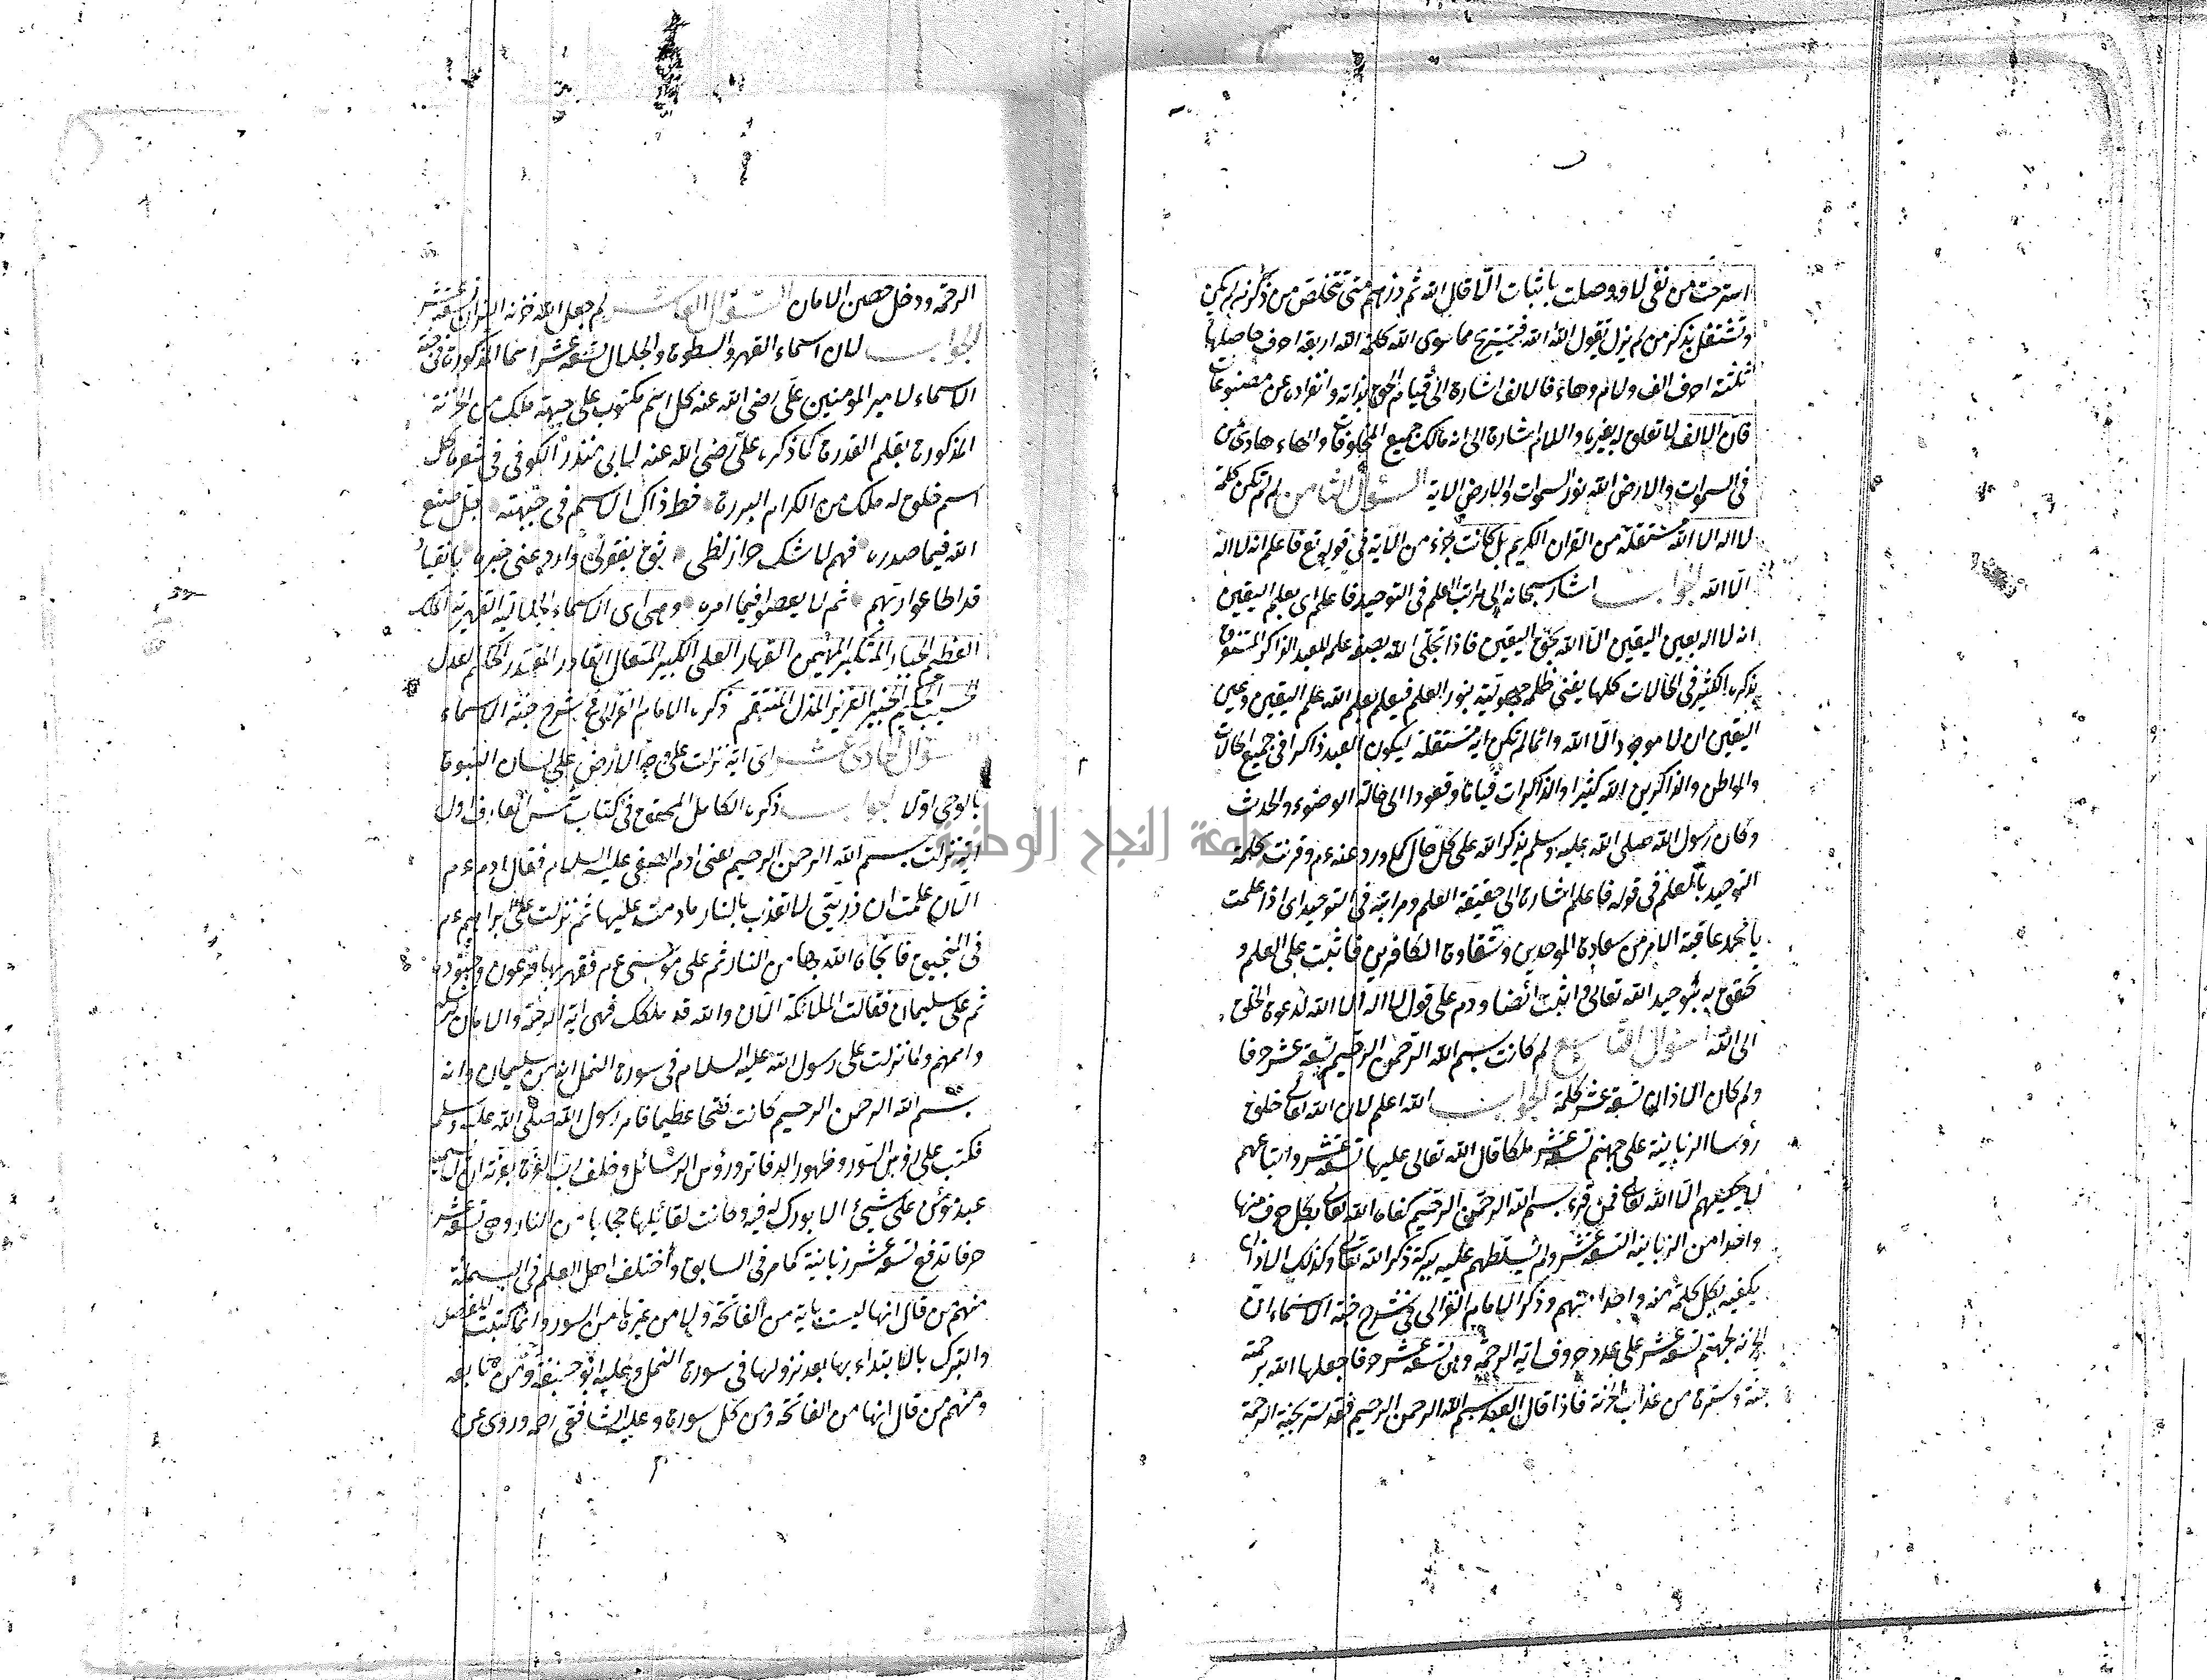 استرحت من نفى لا ووصلت باثبات الا قال الله ثم ذرهم متى تتخلص من ذكر من لم يكن
وتشتغل بذكر من لم يزل تقول الله الله فتستريح مما سوى الله كلمة الله اربعة احرف حاصلها
ثلثة احرف الف ولام وهاء فالالف اشارة الى قيام الحق بذاته وانفراده عن مصنوعاته
فان الالف لا تعلق له بغيره واللام اشارة الى انه مالك جميع المخلوقات والهاء هادى من
فى السموات والارض الله نور السموات والارض الاية السؤال الثامن لم لم تكن كلمة
لا اله الا الله مستقلة من القران الكريم بل كانت جزء من الاية فى قوله تع فاعلم انه لا اله
الا الله الجواب اشار سبحانه الى مراتب العلم فى التوحيد فاعلم اى بعلم اليقين
انه لا اله بعين اليقين الا الله بحق اليقين فاذا تجلى الله بصفة علمه للعبد الذاكر المستغرق
بذكره الكثير فى الحالات كلها يفنى ظلمة جهوليته بنور العلم فيعلم بعلم الله علم اليقين وعين
اليقين ان لا موجود الا الله وانما لم تكن اية مستقلة ليكون العبد ذاكرا فى جميع الحالات
والمواطن والذاكرين الله كثيرا والذاكرات قياما وقعودا الى حالة الوضوء والحدث
وكان رسول الله صلى الله عليه وسلم يذكر الله على كل حال كما ورد عنه عم وقرنت كلمة
التوحيد بالعلم فى قوله فاعلم اشارة الى حقيقة العلم ومراتبه فى التوحيد اى اذا علمت
يا محمد عاقبة الامر من سعادة الموحدين وشقاوة الكافرين فاثبت على العلم و
تحقق به بتوحيد الله تعالى اثبت ايضا ودم على قول لا اله الا الله لدعوة الخلق
الى الله السؤال التاسع لم كانت بسم الله الرحمن الرحيم تسعة عشر حرفا
ولم كان الاذان تسعة عشر كلمة الجواب الله اعلم لان الله تعالى خلق
رؤسا الزبانية على جهنم تسعة عشر ملكا قال الله تعالى عليها تسعة عشر واتباعهم
لا يحصيهم الا الله تعالى فمن قرء بسم الله الرحمن الرحيم كفاه الله تعالى بكل حرف منها
واحدا من الزبانية التسعة عشر ولم يسلطهم عليه ببركة ذكر الله تعالى وكذلك الاذان
يكفيه بكل كلمة منه واحدا منهم وذكر الامام الغزالى فى شرح جنة الاسماء ان
الخزنة لجهنم تسعة عشر على عدد حروف اية الرحمة وهى تسعة عشر حرفا جعلها الله برحمته
جنة وسترة من عذاب الخزنة فاذا قال العبد بسم الله الرحمن الرحيم فقد ستر بجنة الرحمة
الرحمة ودخل حصن الامان السؤال العاشر لم جعل الله خزنة النيران تسعة عشر
الجواب لان اسماء القهر والسطوة والجلال تسعة عشر اسما المذكورة فى جنة
الاسماء لامير المومنين على رضى الله عنه كل اسم مكتوب على جبهة ملك من الخزنة
المذكورة بقلم القدرة كما ذكره على رضى الله عنه لابى منذر الكوفى فى شعره كل
اسم خلق له ملك من الكرام البررة خط ذاك الاسم فى جبهته جل صنع
الله فيما صدره فهم لا شك حراز لظى
قد اطاعوا ربهم ثم لا يعصوا فيما امره وهى اى الاسماء الجلالية القهرية الملك
العظيم الجبار المتكبر المهيمن القهار العلى الكبير المتعال القادر المقتدر الحكم العدل
الحسيب الحكيم الخبير العزيز المذل المنتقم ذكره الامام الغزالى فى شرح جنة الاسماء
السؤال الحادى عشر اى اية نزلت على وجه الارض على لسان النبوة
بالوحى اولا الجواب ذكره الكامل المحقق فى كتاب شمس المعارف اول
اية نزلت بسم الله الرحمن الرحيم اعنى ادم الصفى عليه السلام فقال ادم عم
الان علمت ان ذريتى لا تعذب بالنار ما دمت عليها ثم نزلت على ابراهيم عم
فى المنجنيق فانجاه الله بها من النار ثم على موسى عم فقهر بها فرعون وجنوده
ثم على سليمان فقالت الملائكة الان والله قد ملكك فهى اية الرحمة والامان
واممهم ولما نزلت على رسول الله عليه السلام فى سورة النمل انه من سليمان وانه
بسم الله الرحمن الرحيم كانت فتحا عظيما فامر رسول الله صلى الله عليه وسلم
فكتبت على رؤس السور وظهور الدفاتر ورؤس الرسائل وحلف رب العزة بعزته ان لا يسميه
عبد مؤمن على شيئ الا بورك له فيه وكانت لقائيلها حجابا من النار وهى تسعة عشر
حرفا تدفع تسعة عشر زبانية كما مر فى السابق واختلف اهل العلم فى البسملة
منهم من قال انها ليست باية من الفاتحة ولا من غيرها من السور وانما كتبت للفصل
والتبرك بالابتداء بها بعد نزولها فى سورة النمل وعليه ابو حنيفة ومن تابعه
ومنهم من قال انها من الفاتحة ومن كل سورة وعليه الشافعى رحمه وروى عن
جامعة النجاح الوطنية